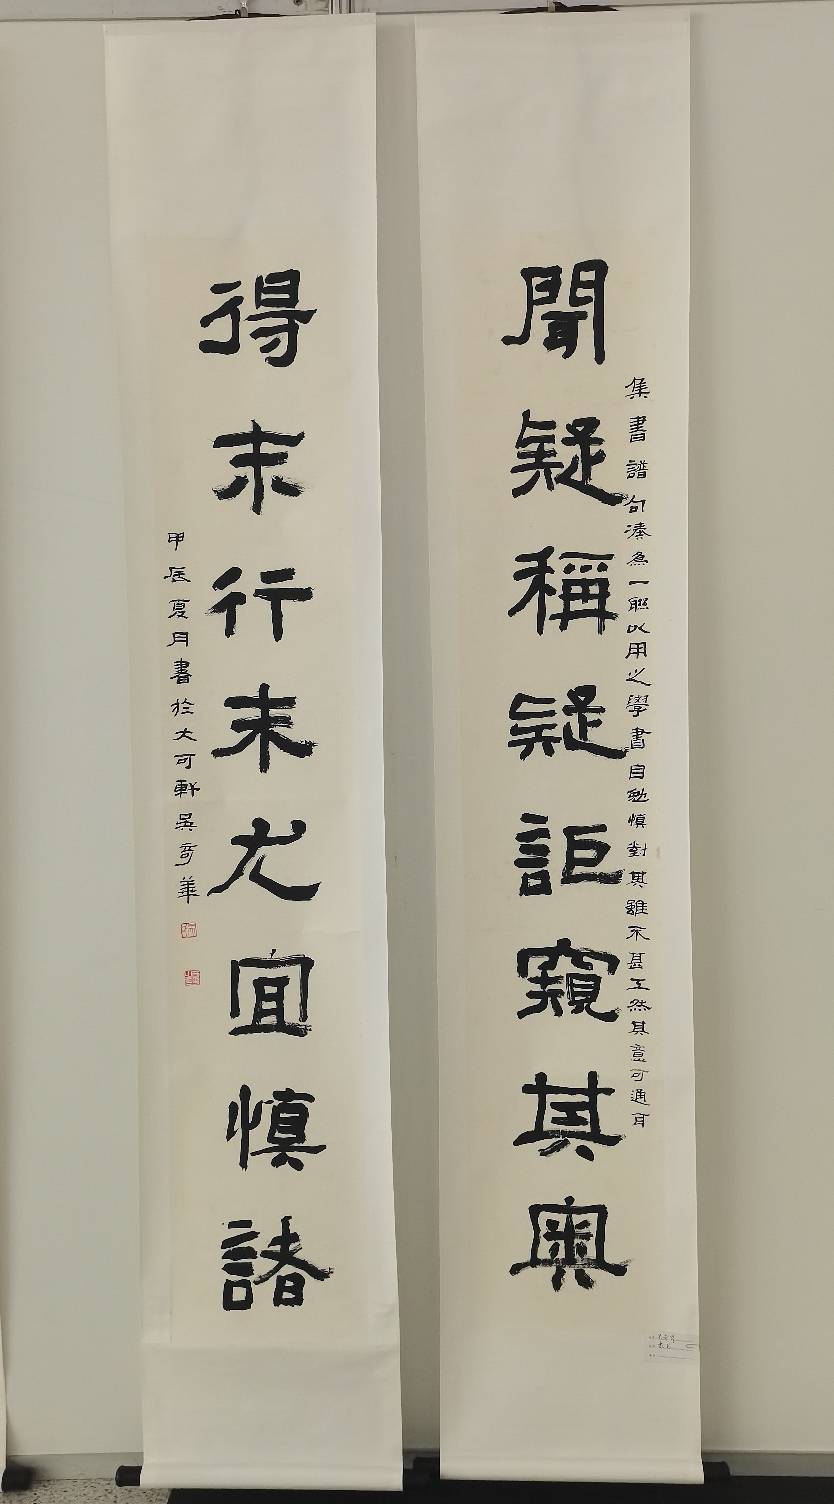 聞疑稱疑詎窺其奧
集書譜句湊為一聯以用之學書自勉慎對其雖不甚工然其意可通耳
得末行末尤宜慎諸
甲辰夏月書於大可軒吳奇華